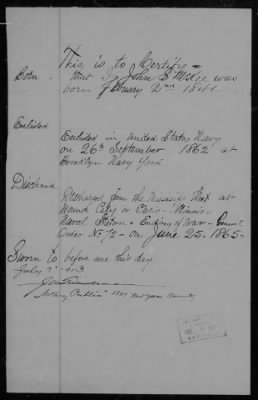 This is to Certify =
Born - that I John B McKee was
born February 2nd 1841
Enlisted
Enlisted in United States Navy
on 26th September 1862 at
Brooklyn Navy Yard
Discharged from the Mississippi at
Mound City or Cairo - Illinois -
Naval Station - Ending of War - General
Order No 72 - on June 25 - 1865 -
Sworn to before me this day
July 7 - 1913
Notary Public New York County